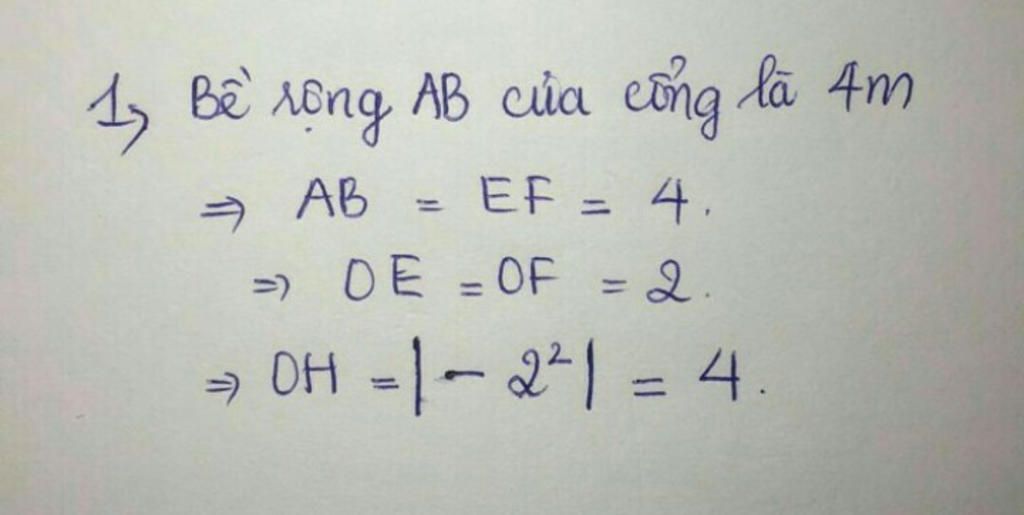 1, Bề rộng AB của cổng là 4m
⇒ AB = EF = 4.
⇒ OE = OF = 2.
⇒ OH = |-2²| = 4.